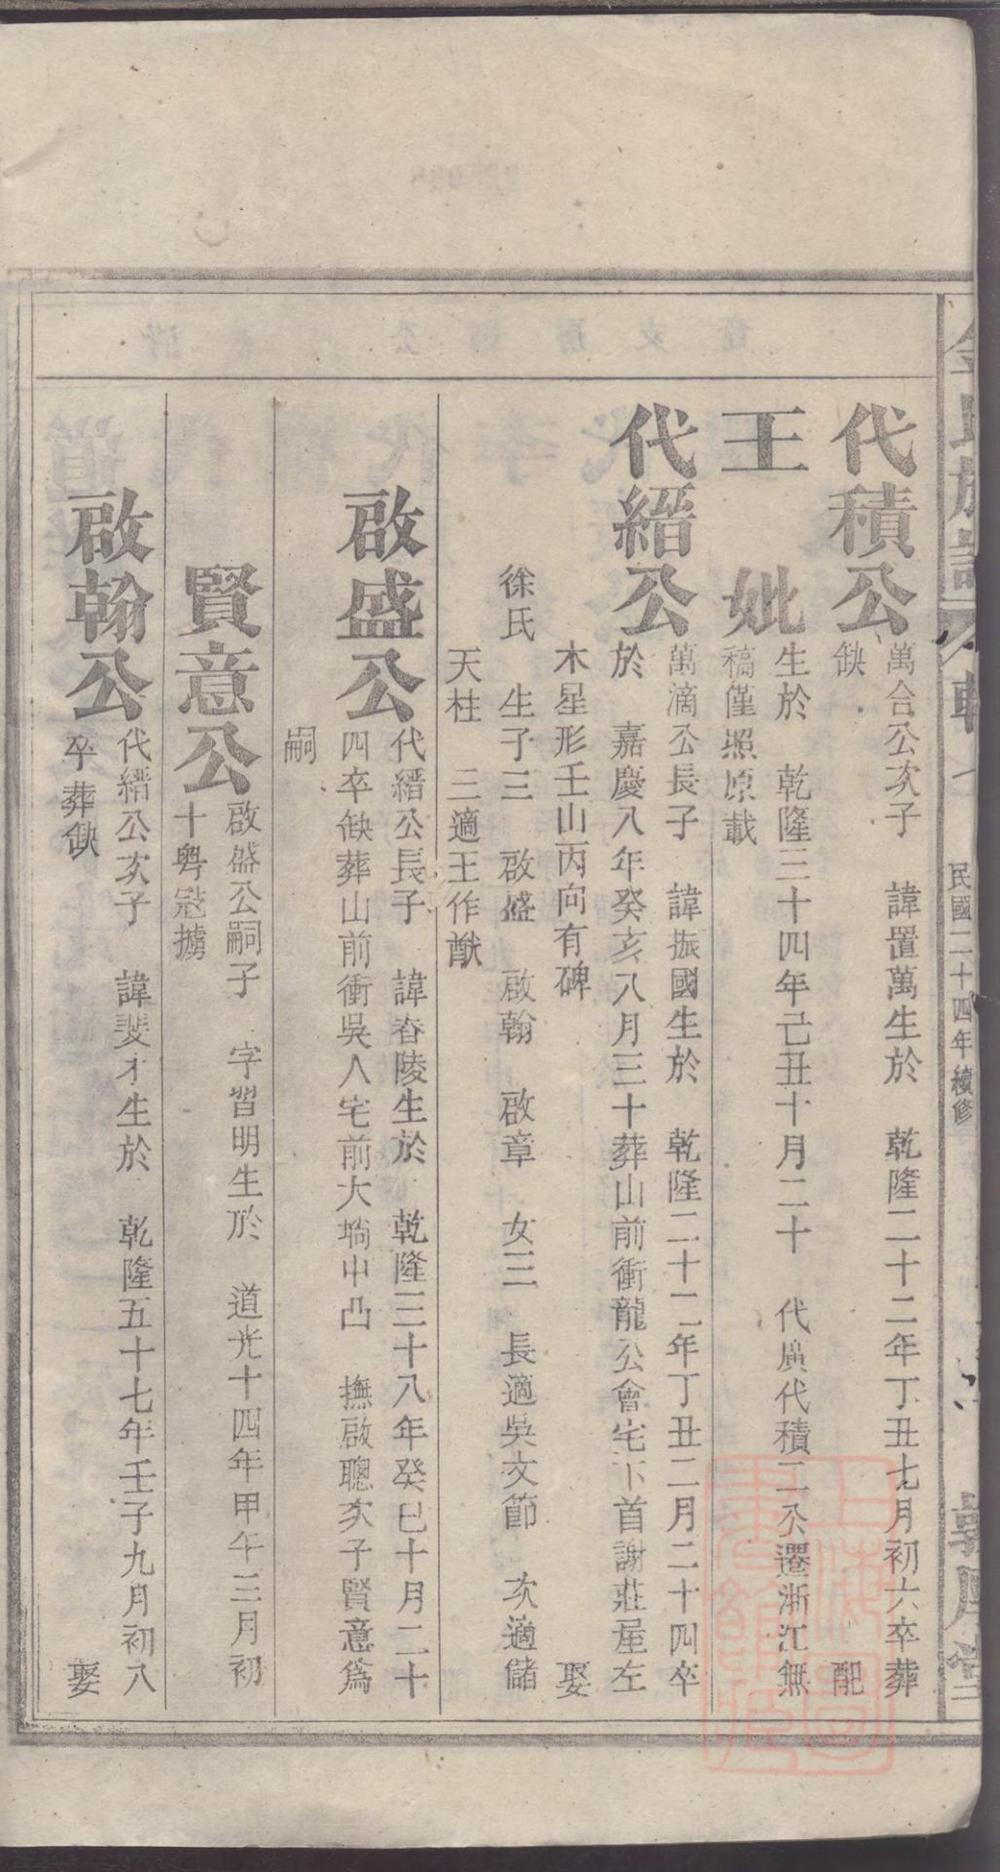 民國二十四年續修
代積公
萬合公次子 諱置萬生於 乾隆二十二年丁丑七月初六卒葬
缺 配
王 妣
生於 乾隆三十四年己丑十月二十 代廣代積二公遷浙江無
稿僅照原載
代縉公
萬滴公長子 諱振國生於 乾隆二十二年丁丑二月二十四卒
於 嘉慶八年癸亥八月三十葬山前衝龍公會宅下首謝莊屋左
木星形壬山丙向有碑 娶
徐氏 生子三 啟盛 啟翰 啟章 女三 長適吳文節 次適儲
天柱 三適王作猷
啟盛公
代縉公長子 諱春陵生於 乾隆三十八年癸巳十月二十
四卒缺葬山前衝吳人宅前大塲中凸 撫啟聰次子賢意爲
嗣
賢意公
啟盛公嗣子 字習明生於 道光十四年甲午三月初
十粵冦擄
啟翰公
代縉公次子 諱斐才生於 乾隆五十七年壬子九月初八
卒葬缺 娶